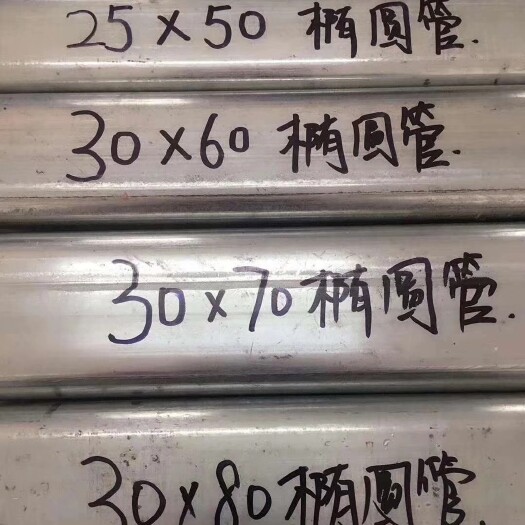 25×50 椭圆管.
30×60 椭圆管.
30×70 椭圆管.
30×80 椭圆管